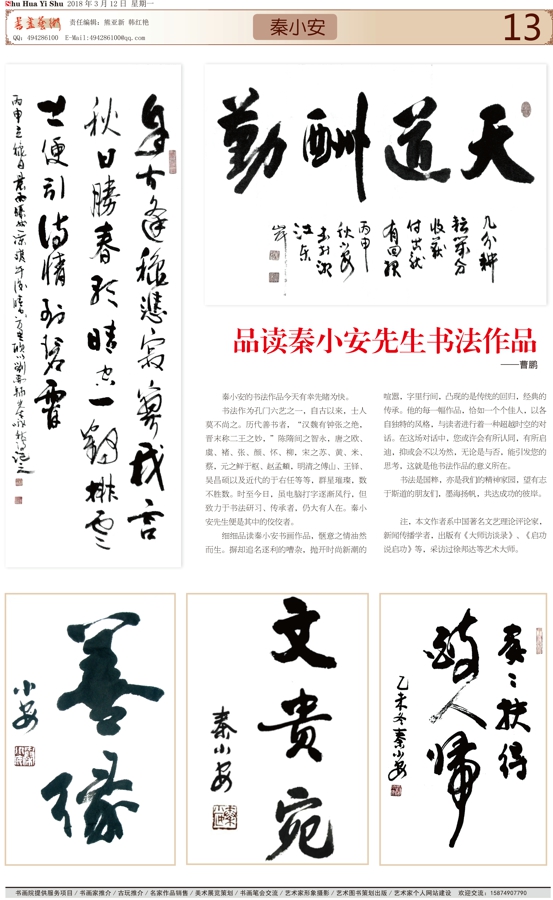 Shu Hua Yi Shu 2018 年 3 月 12 日 星期一
书画艺术
责任编辑：熊亚新 韩红艳
QQ：494286100 E-Mail:494286100@qq.com
秦小安
13
自古逢秋悲寂寥我言
秋日胜春朝晴空一鹤排云
上便引诗情到碧霄
天道酬勤
几分耕
耘几分
收获
付出就
有回报
丙申
秋小安
书于湖
江东
岸
品读秦小安先生书法作品
——曹鹏
秦小安的书法作品今天有幸先睹为快。
书法作为孔门六艺之一，自古以来，士人
莫不尚之。历代善书者，“汉魏有钟张之绝，
晋末称二王之妙，”隋隋间之智永，唐之欧、
虞、褚、张、颜、怀、柳，宋之苏、黄、米、
蔡，元之鲜于枢、赵孟頫，明清之傅山、王铎、
吴昌硕以及近代的于右任等等，群星璀璨，数
不胜数。时至今日，虽电脑打字逐渐风行，但
致力于书法研习、传承者，仍大有人在。秦小
安先生便是其中的佼佼者。
细细品读秦小安书画作品，惬意之情油然
而生。摒却追名逐利的嘈杂，抛开时尚新潮的
喧嚣，字里行间，凸现的是传统的回归，经典的
传承。他的每一幅作品，恰如一个个佳人，以各
自独特的风格，与读者进行着一种超越时空的对
话。在这场对话中，您或许会有所认同，有所启
迪，抑或会不以为然，无论是与否，能引发您的
思考，这就是他书法作品的意义所在。
书法是国粹，亦是我们的精神家园，望有志
于斯道的朋友们，墨海扬帆，共达成功的彼岸。
注，本文作者系中国著名文艺理论评论家，
新闻传播学者，出版有《大师访谈录》、《启功
说启功》等，采访过徐邦达等艺术大师。
善缘
小安
文贵宛
秦小安
家家扶得
醉人归
乙未冬秦小安
书画院提供服务项目／书画家推介／古玩推介／名家作品销售／美术展览策划／书画笔会交流／艺术家形象摄影／艺术图书策划出版／艺术家个人网站建设 欢迎交流：15874907790